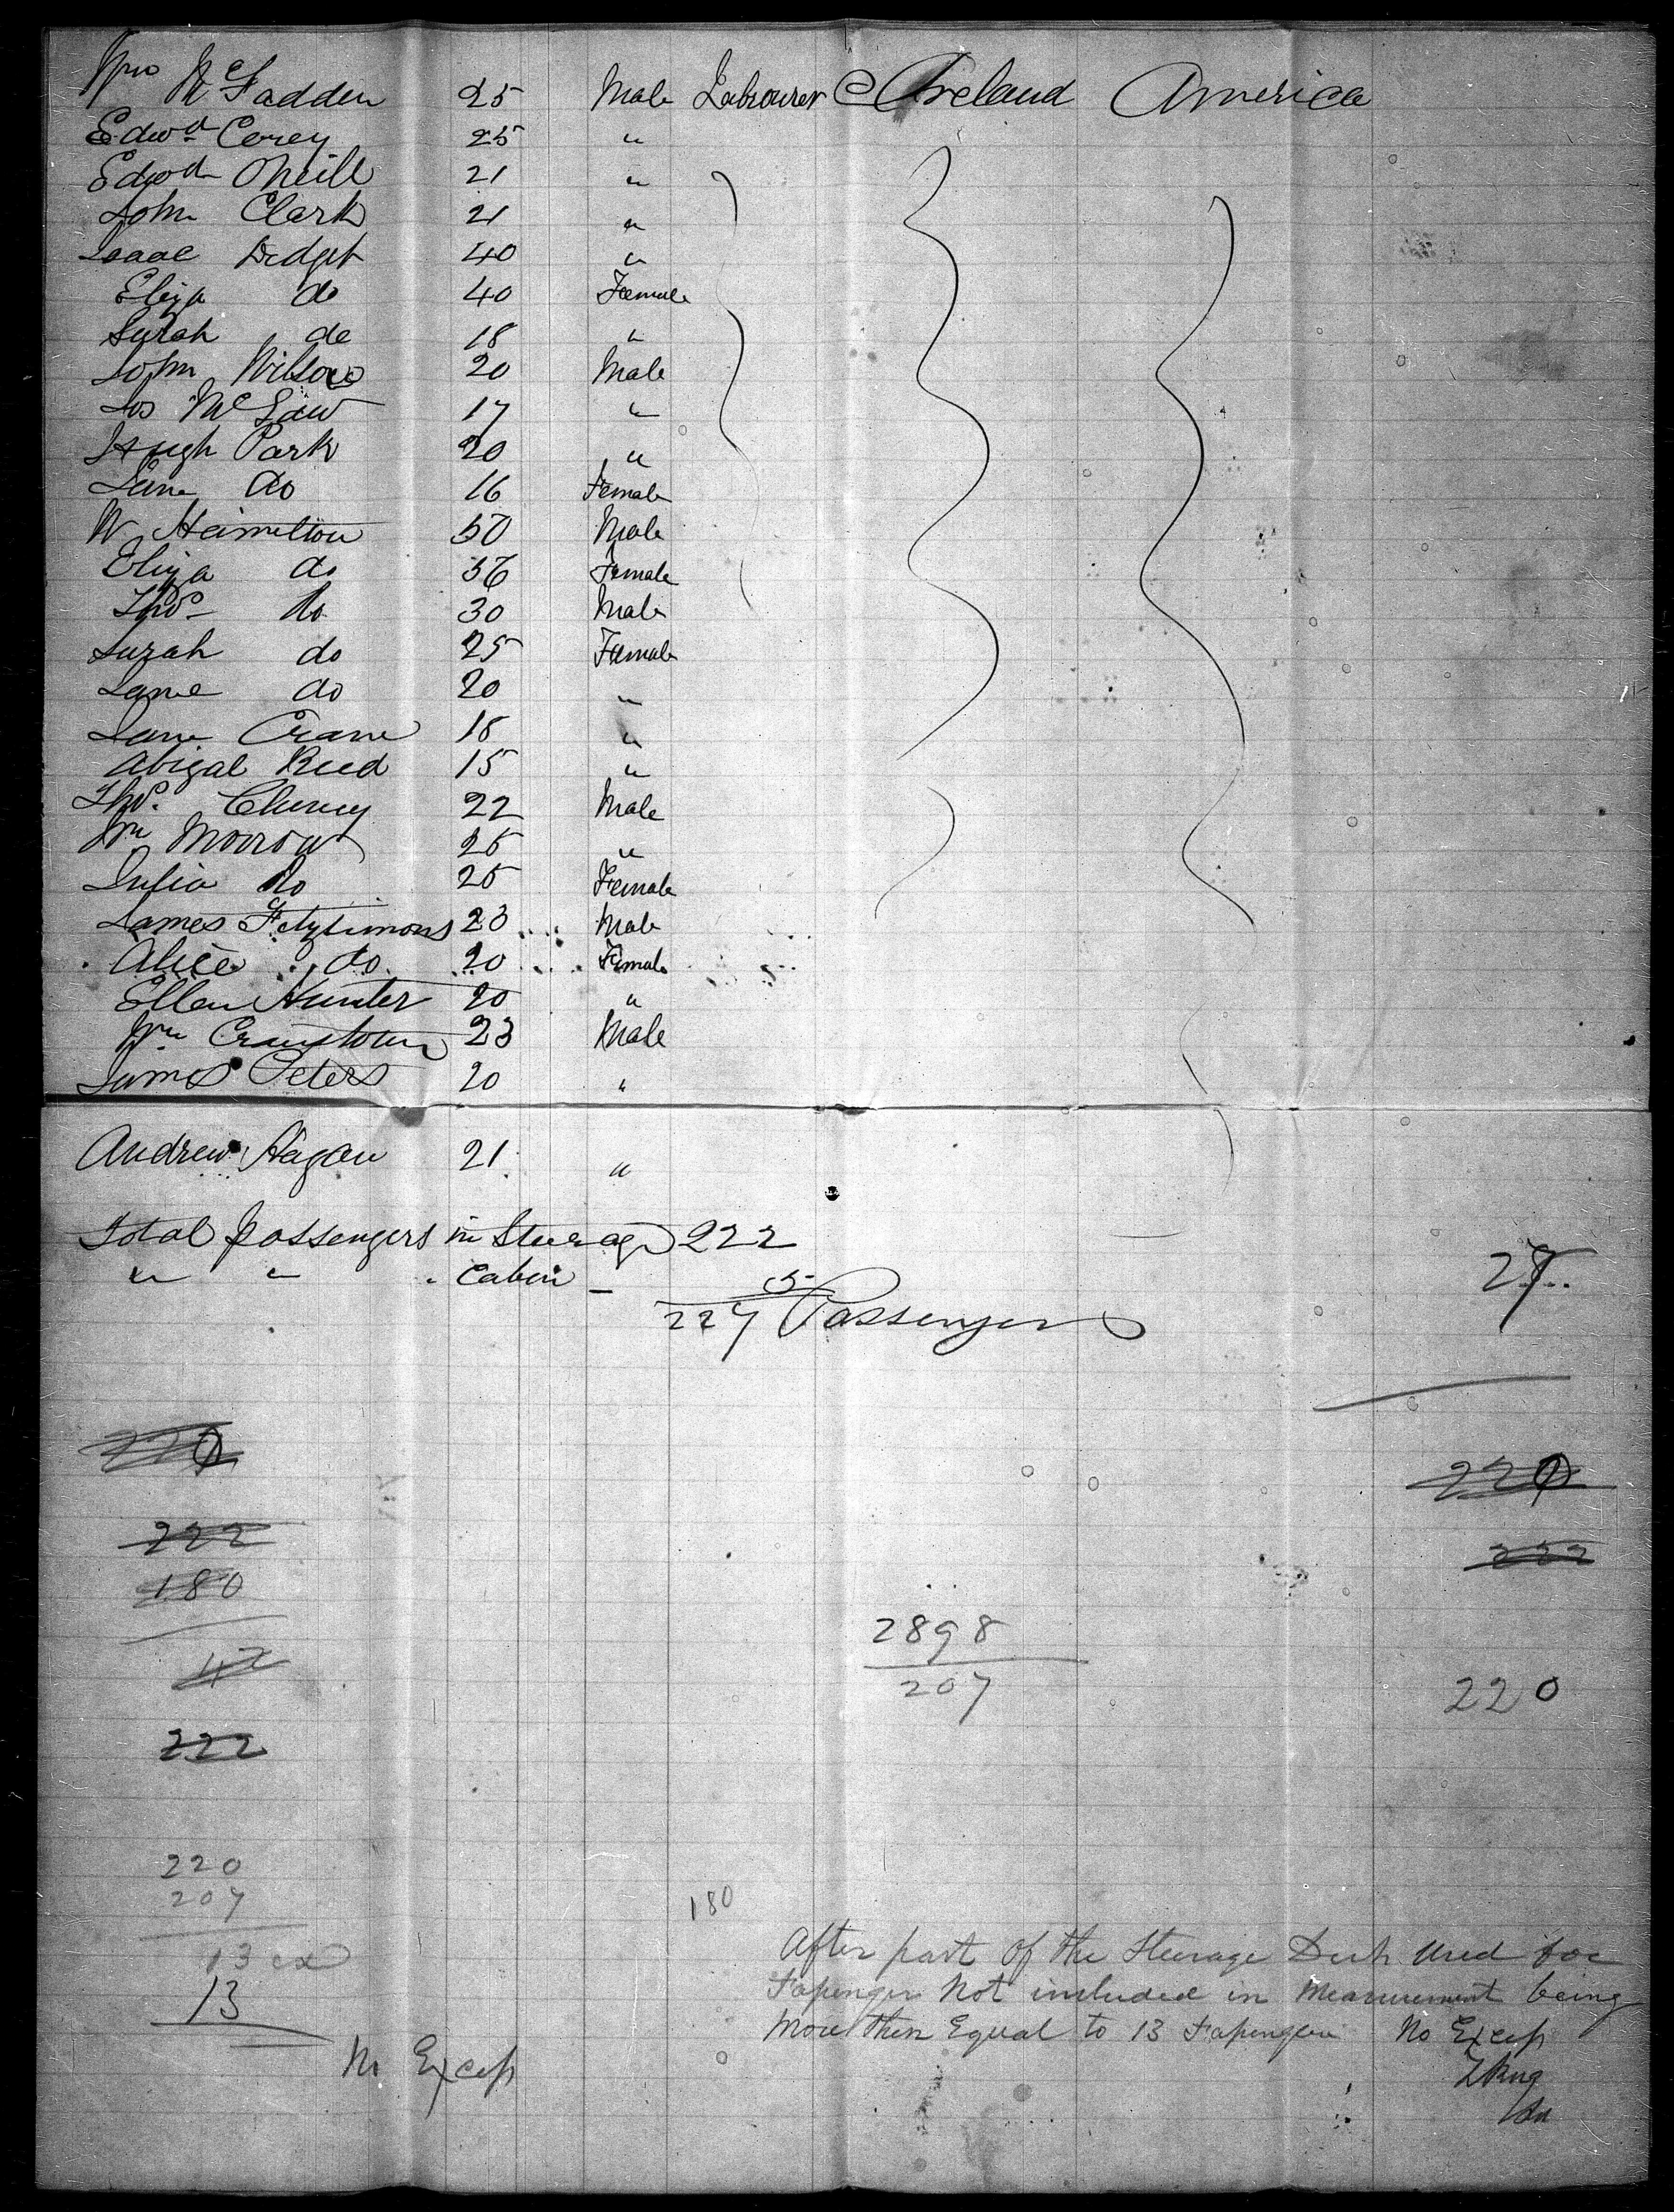 Wm McFadden 25 Male Labourer Ireland America
Edwd Corey 25 "
Edwd ONeill 21 "
John Clark 21 "
Isaac 40 "
Eliza do 40 Female
Sarah do 18 "
John Wilson 20 Male
Jos McLaw 17 "
Hugh Park 20 "
Jane do 16 Female
W Hamilton 50 Male
Eliza do 56 Female
Thos do 30 Male
Sarah do 25 Female
Jane do 20 "
Jane Crane 18 "
Abigal Reed 15 "
Thos. 22 Male
Wm Morrow 25 "
Julia do 25 Female
James Fitzsimons 23 Male
Alice do 20 Female
Ellen Hunter 20 "
Wm Cranstown 23 Male
James Peters 20 "
Andrew Hagan 21 "
Total passengers in Steerage 222
" " " Cabin – 5
227 Passengers
27
220
220
222
222
180
42
2898
207
220
222
220
207
13 ex
13
No Excess
180
After part of the Steerage Deck Used for
Passengers Not included in Measurement being
More then Equal to 13 Passengers No Excess